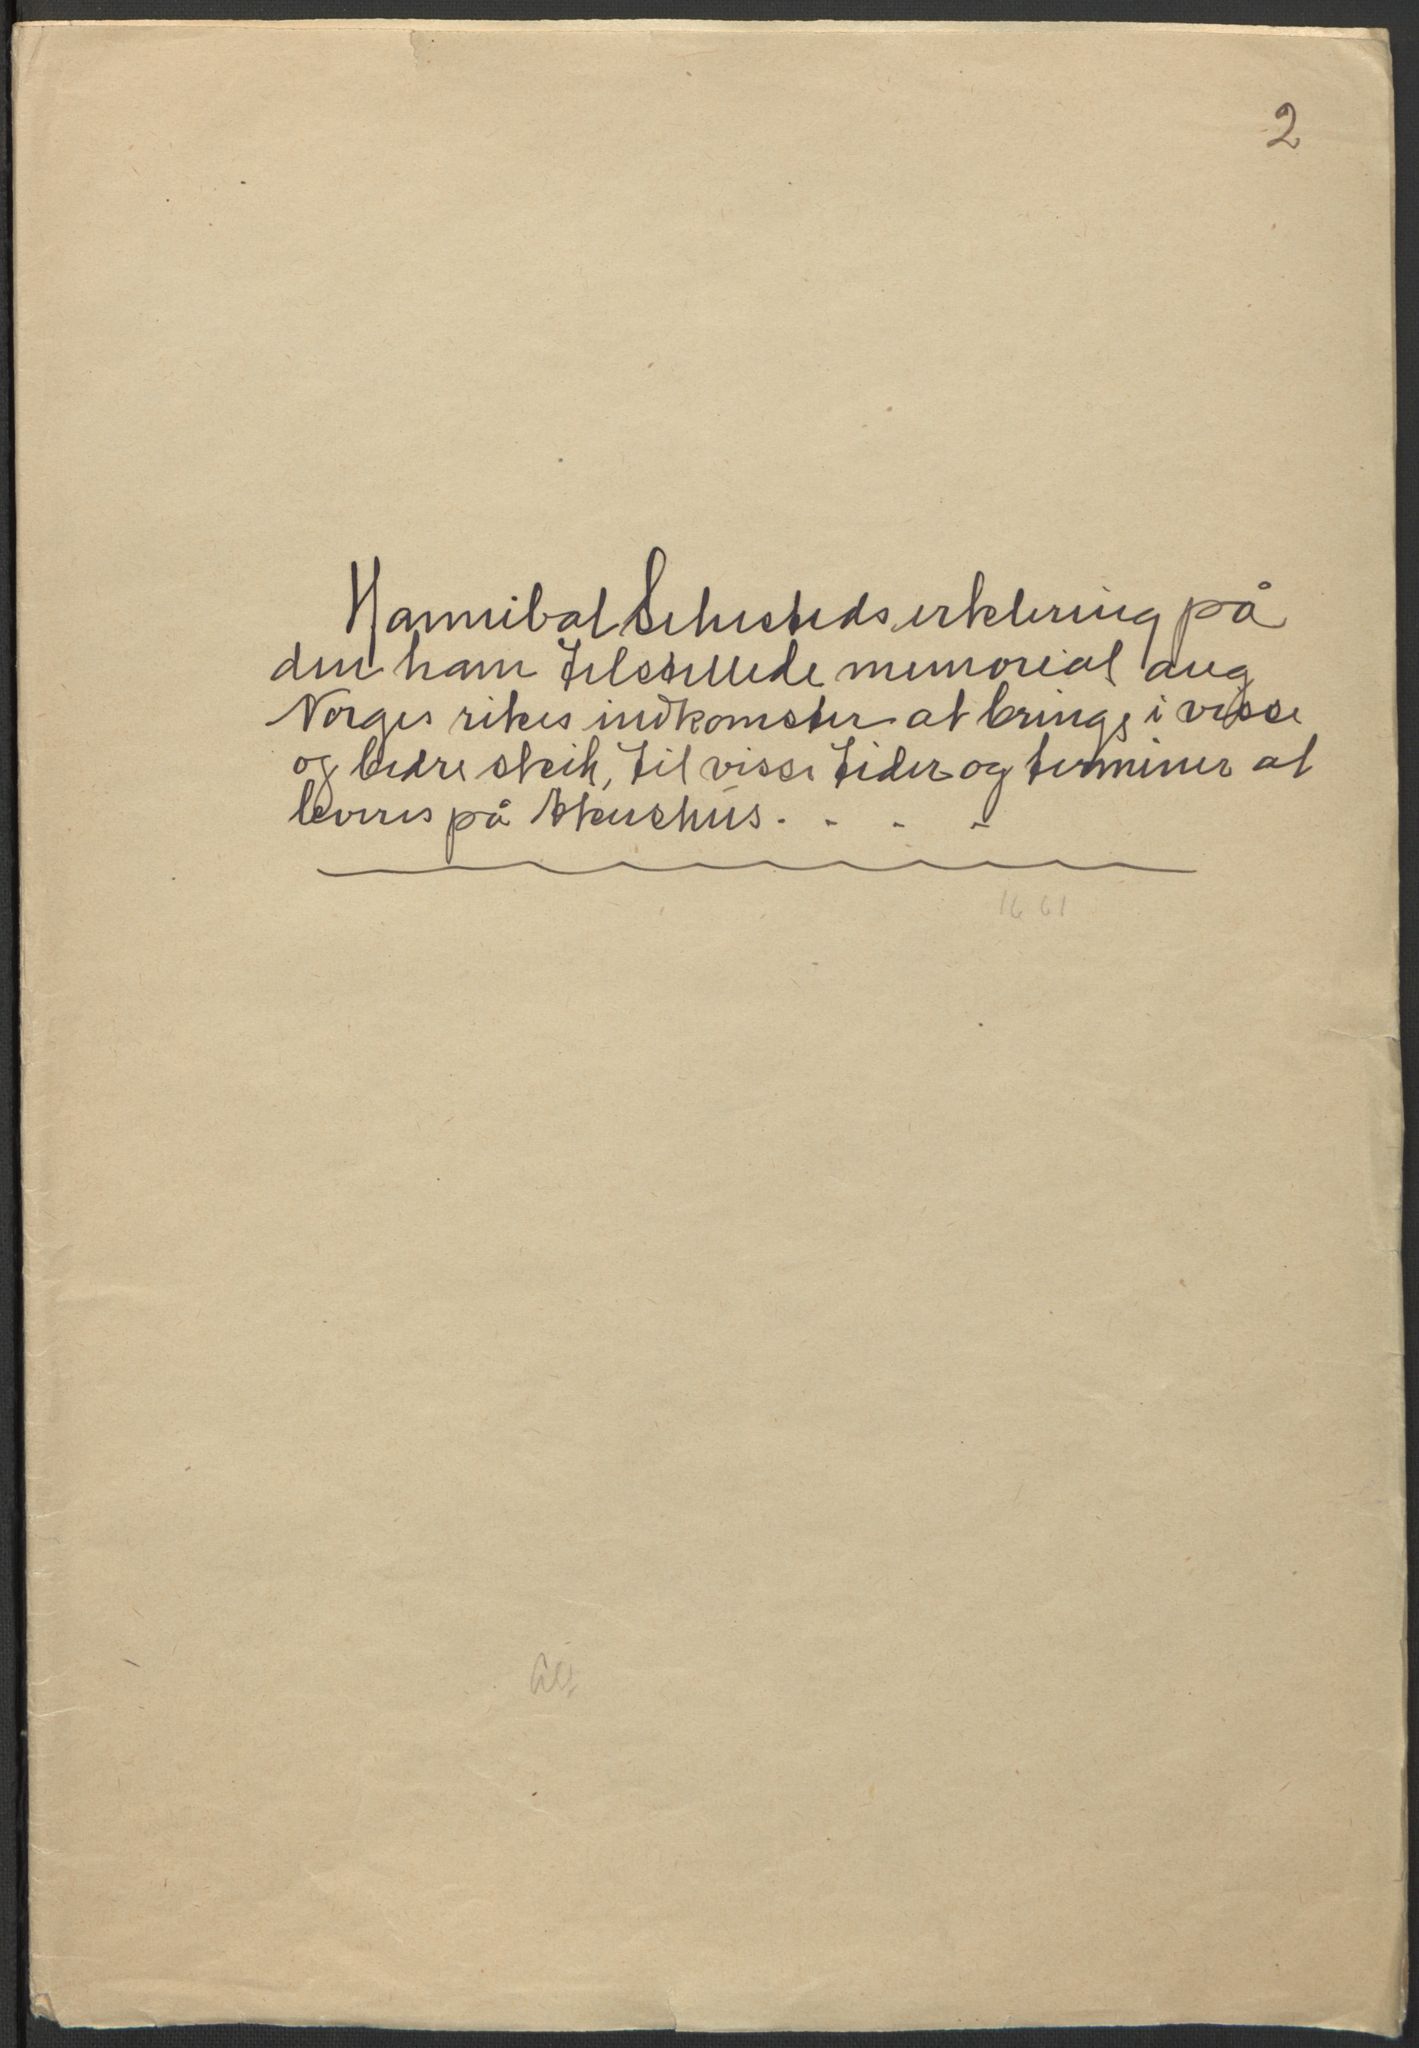 2
Hannibal Sehesteds erklering på
den ham tilstillede memorial ang
Norges rikes indkomster at bringe i visse
og bedre skik, til visse tider og terminer at
leveres på Akershus. - - -
1661